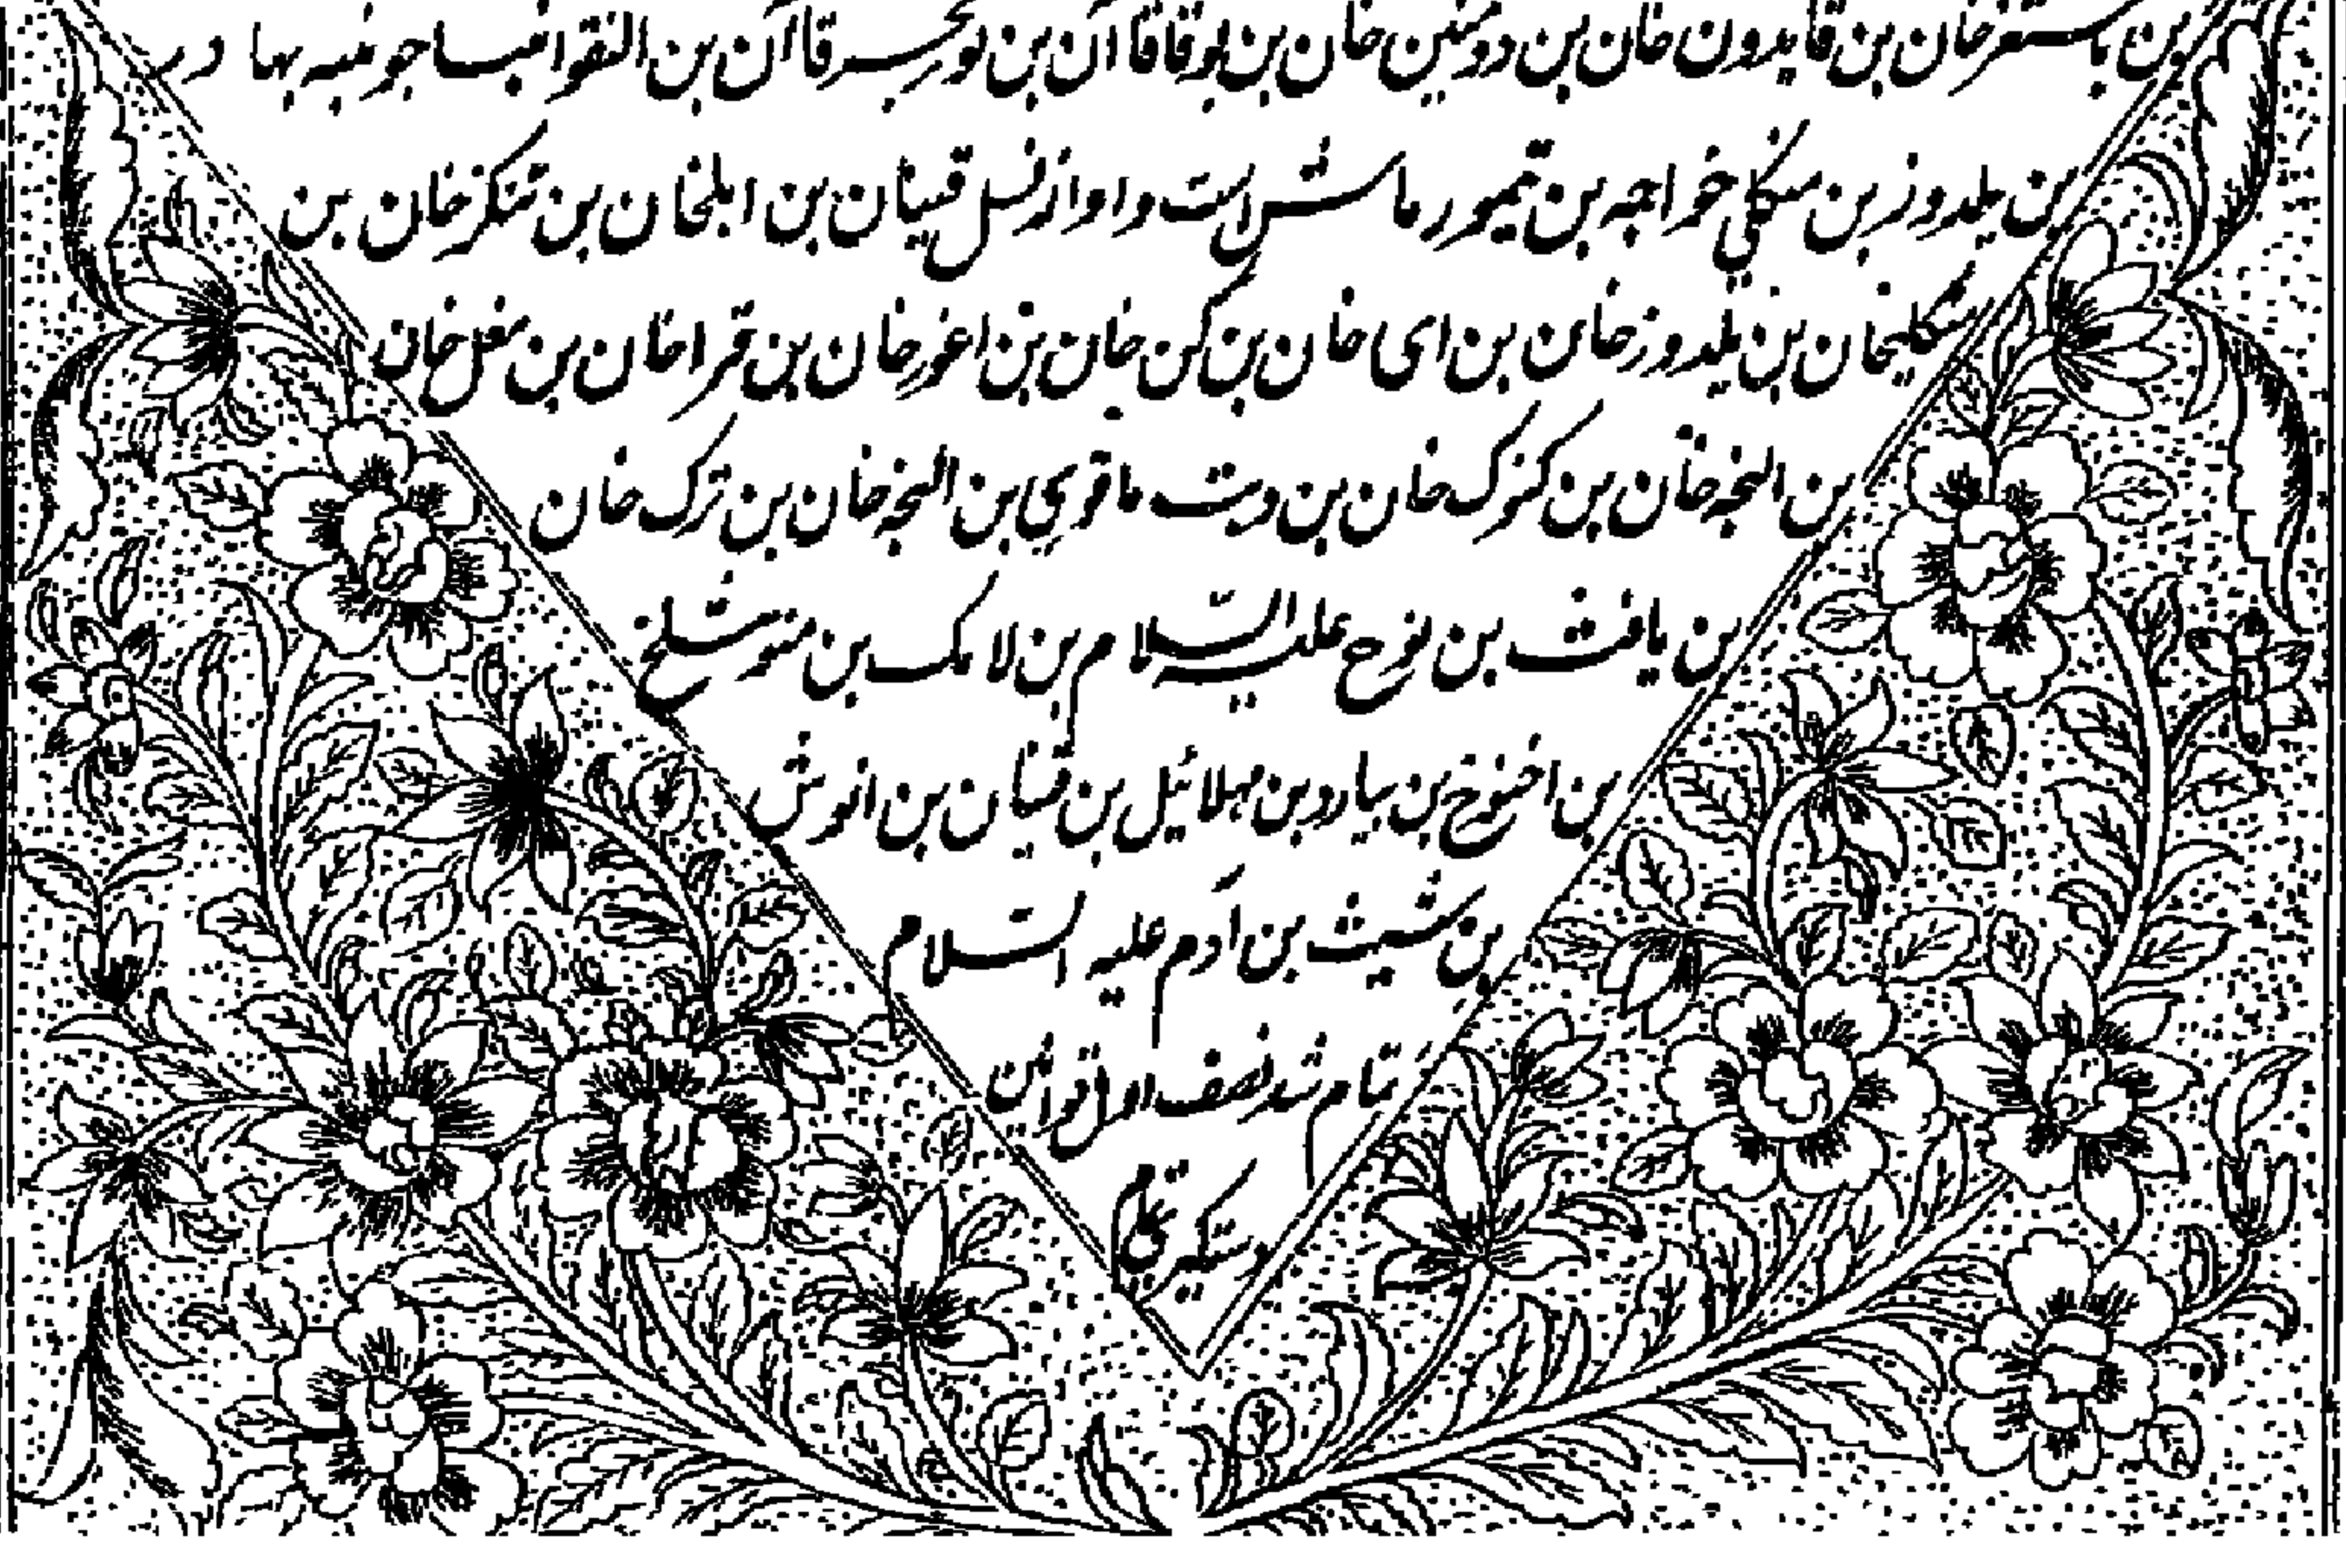 بن بایسنقرخان بن قایدون خان بن دومنین خان بن بوقاقا آن بن بوبخسر قا آن بن النقوا بها در
بن یلدوز بن منکلی خواجه بن تیمور ماش است و او از نسل قینان بن ایلخان بن تنکز خان بن
منکلیخان بن یلدوز خان بن ای خان بن کن خان بن اغوز خان بن قرا خان بن مغل خان
بن النجه خان بن کنوک خان بن دیت ماقوی بن النجه خان بن ترک خان
بن یافث بن نوح علیه السلام بن لامک بن متوشلخ
بن اخنوخ بن یارد بن مهلائیل بن قنیان بن انوش
بن شیث بن آدم علیه السلام
تمام شد نصف اول قوانین
دستکیر